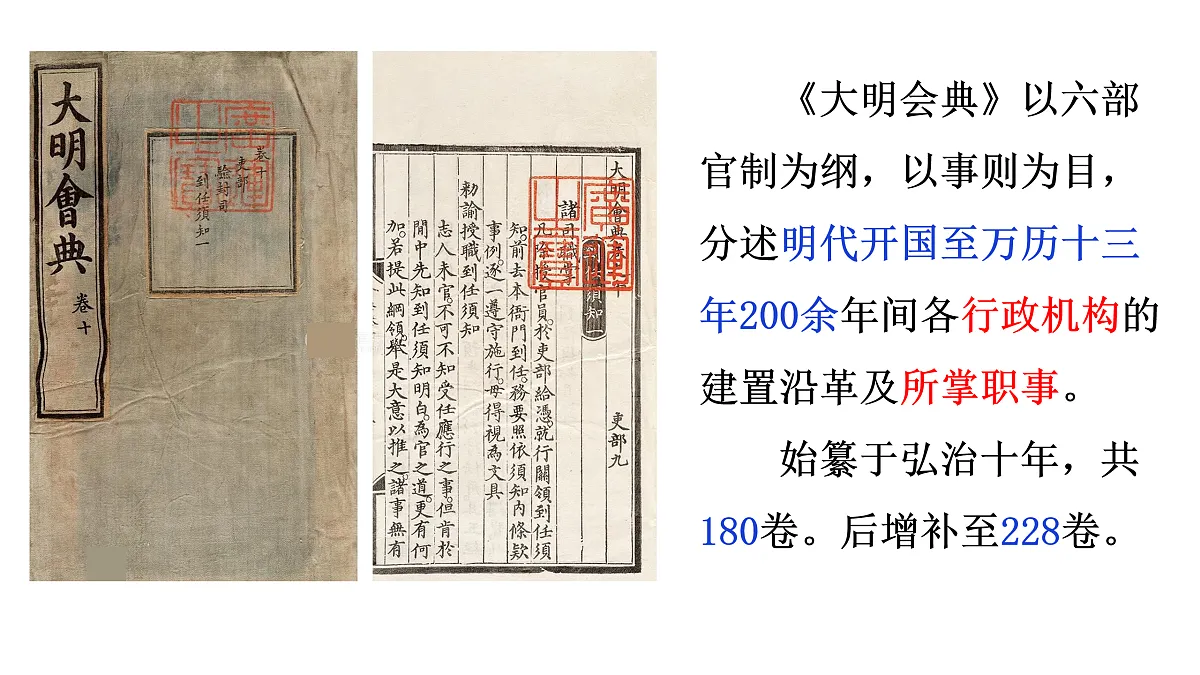 大明會典
卷十
卷十
吏部
驗封司
到任須知一
大明會典卷
吏部九
諸司職掌
凡除授官員於吏部給憑就行關領到任須
知前去本衙門到任務要照依須知内條欵
事例逐一遵守施行毋得視為文具
勑諭授職到任須知
志人未官不可不知受任應行之事但肯於
閒中先知到任須知明白為官之道更有何
加若提此綱領舉是大意以推之諸事無有
《大明会典》以六部
官制为纲，以事则为目，
分述明代开国至万历十三
年200余年间各行政机构的
建置沿革及所掌职事。
始纂于弘治十年，共
180卷。后增补至228卷。